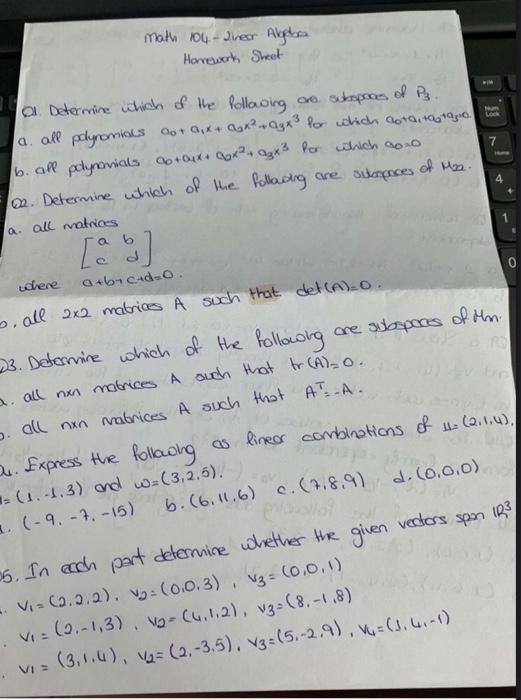 Math 104 - Linear Algebra
Homework Sheet
Q1. Determine which of the following are subspaces of P3.
a. all polynomials a0+a1x+a2x²+a3x³ for which a0+a1+a2+a3=0
b. all polynomials a0+a1x+a2x²+a3x³ for which a0=0
Q2. Determine which of the following are subspaces of M22.
a. all matrices
[a b
c d]
where a+b+c+d=0.
b. all 2x2 matrices A such that det(A)=0.
Q3. Determine which of the following are subspaces of Mnn.
a. all nxn matrices A such that tr(A)=0.
b. all nxn matrices A such that Aᵀ=-A.
4. Express the following as linear combinations of u=(2,1,4),
v=(1,-1,3) and w=(3,2,5).
a. (-9,-7,-15) b. (6,11,6) c. (7,8,9) d. (0,0,0)
Q5. In each part determine whether the given vectors span IR³
. V1=(2,2,2), V2=(0,0,3), V3=(0,0,1)
. V1=(2,-1,3), V2=(4,1,2), V3=(8,-1,8)
. V1=(3,1,4), V2=(2,-3,5), V3=(5,-2,9), V4=(1,4,-1)
Num
Lock
7
Home
4
1
0